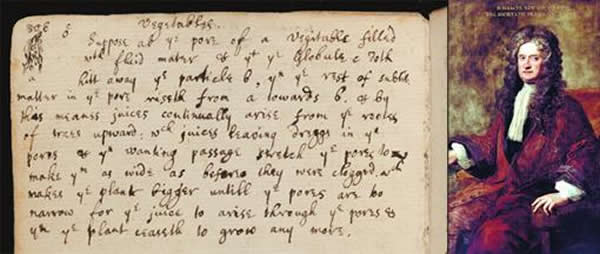 306 6 Vegetables.
Suppose ab yᵉ pore of a Vegitable filled
wᵗʰ fluid mater & yᵗ yᵉ Globule c doth
hitt away yᵉ particle b, yⁿ yᵉ rest of subtle
matter in yᵉ pore riseth from a towards b. & by
this meanes juices continually arise from yᵉ rootes
of trees upward: wᶜʰ juices leaving dreggs in yᵉ
pores & yⁿ wanting passage stretch yᵉ pores to
make yᵐ as wide as before they were clogged. wᶜʰ
makes yᵉ plant bigger untill yᵉ pores are too
narrow for yᵉ juice to arise through yᵉ pores &
yⁿ yᵉ plant ceaseth to grow any more.